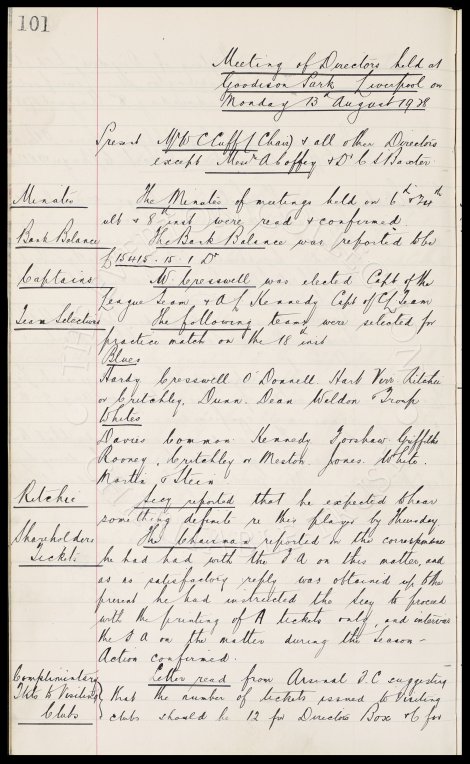 101
Meeting of Directors held at
Goodison Park Liverpool on
Monday 13th August 1928
Present Mr W C Cuff (Chair) & all other Directors
except Messrs A Coffey & Dr C S Baxter
Minutes The Minutes of meetings held on 6th & 24th
ult & 8 inst were read & confirmed.
Bank Balance The Bank Balance was reported to be
£15415. 15. 1 Dr
Captains W. Cresswell was elected Capt of the
League Team & A L Kennedy Capt of CL Team
Team Selections The following teams were selected for
practice match on the 18th inst
Blues
Hardy Cresswell O'Donnell. Hart Virr Ritchie
or Critchley, Dunn. Dean Weldon & Troup
Whites
Davies Common Kennedy Griffiths
Rooney, Critchley or Meston. Jones. White.
Martin & Stein
Ritchie Secy reported that he expected to hear
something definite re this player by Thursday
Shareholders The Chairman reported on the correspondence
Tickets he had had with the F A on this matter, and
as no satisfactory reply was obtained up to the
present he had instructed the Secy to proceed
with the printing of A tickets only, and interview
the F A on the matter during the season-
Action confirmed.
Complimentary Letter read from Arsenal F.C suggesting
Tkts to Visiting that the number of tickets issued to visiting
Clubs clubs should be 12 for Directors Box & 6 for